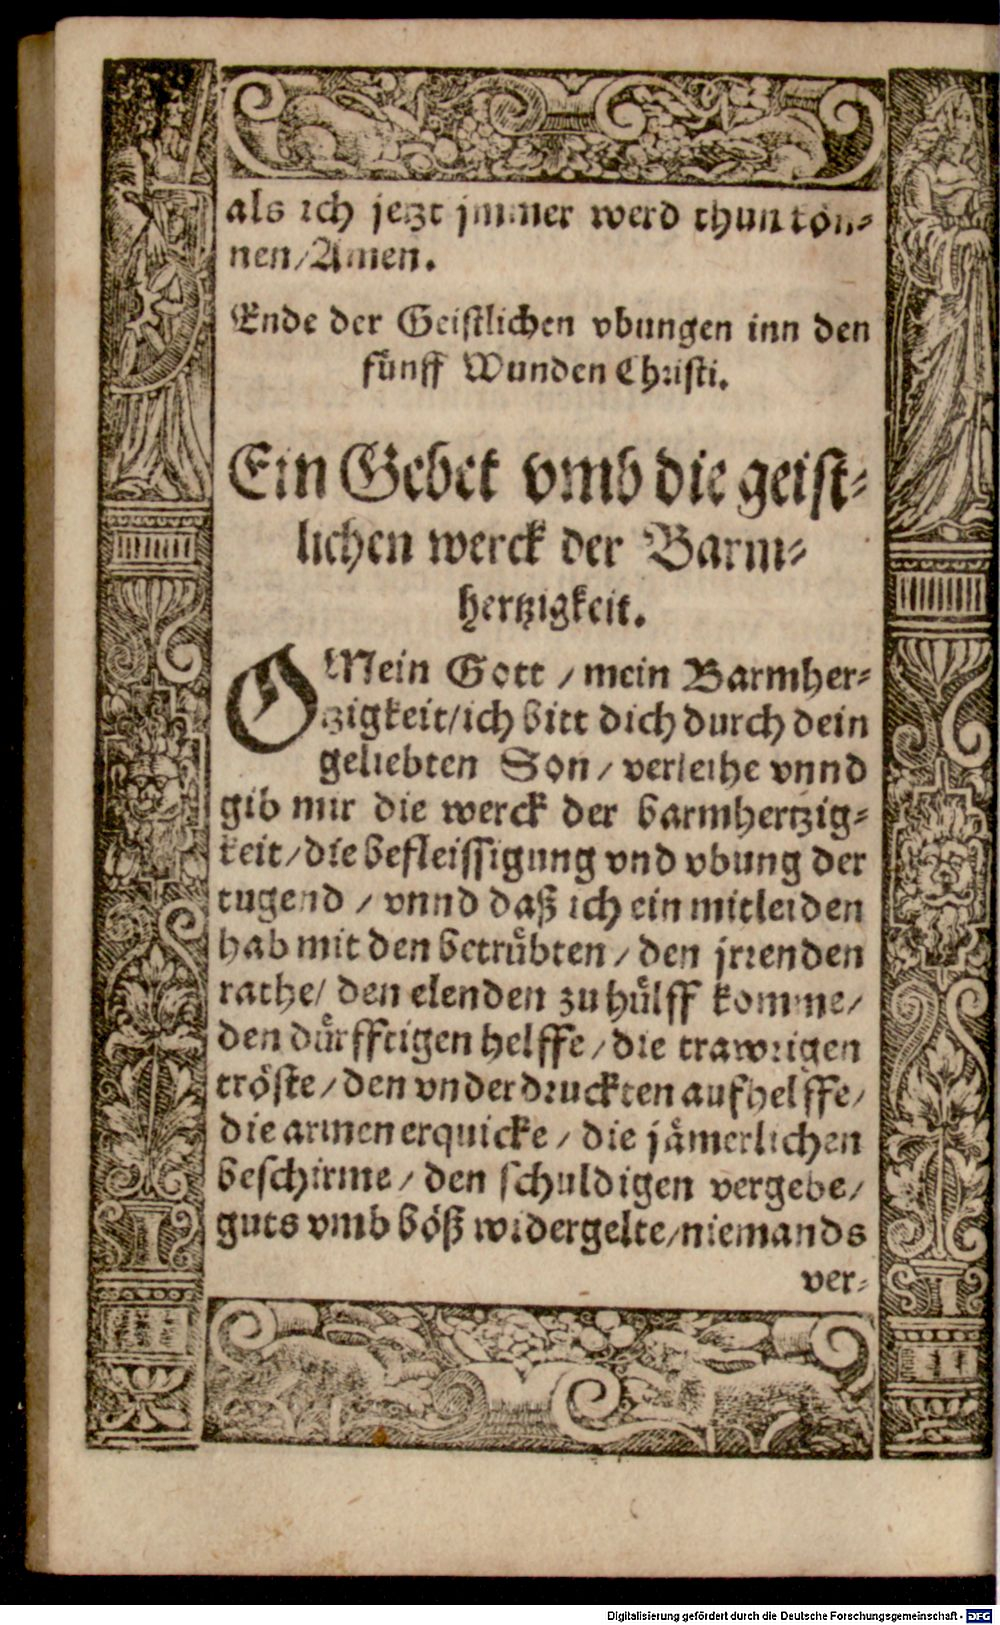 als ich jetzt jmmer werd thun kön-
nen/Amen.
Ende der Geistlichen vbungen inn den
fünff Wunden Christi.
Ein Gebet vmb die geist-
lichen werck der Barm-
hertzigkeit.
O Mein Gott / mein Barmher-
tzigkeit/ich bitt dich durch dein
geliebten Son / verleihe vnnd
gib mir die werck der barmhertzig-
keit/die befleissigung vnd vbung der
tugend / vnnd daß ich ein mitleiden
hab mit den betrůbten / den jrrenden
rathe/ den elenden zu hůlff komme/
den důrfftigen helffe / die trawrigen
tröste / den vnderdruckten aufhelffe/
die armen erquicke / die jåmerlichen
beschirme / den schuldigen vergebe/
guts vmb böß widergelte/niemands
ver-
Digitalisierung gefördert durch die Deutsche Forschungsgemeinschaft - DFG